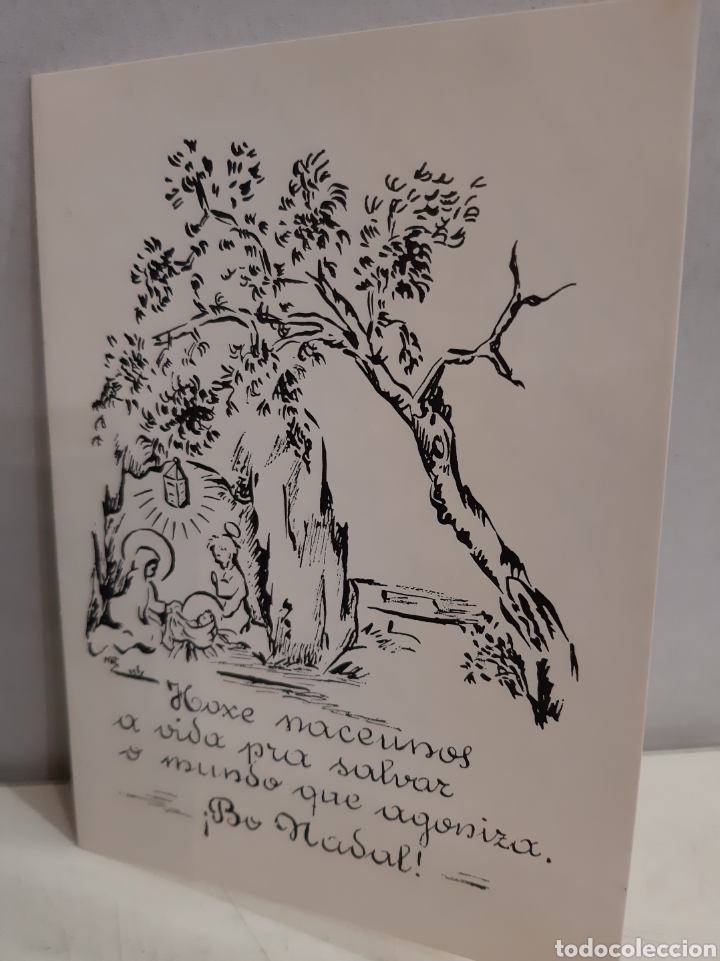 Hoxe naceunos
a vida pra salvar
o mundo que agoniza.
¡Bo Nadal!
todocoleccion